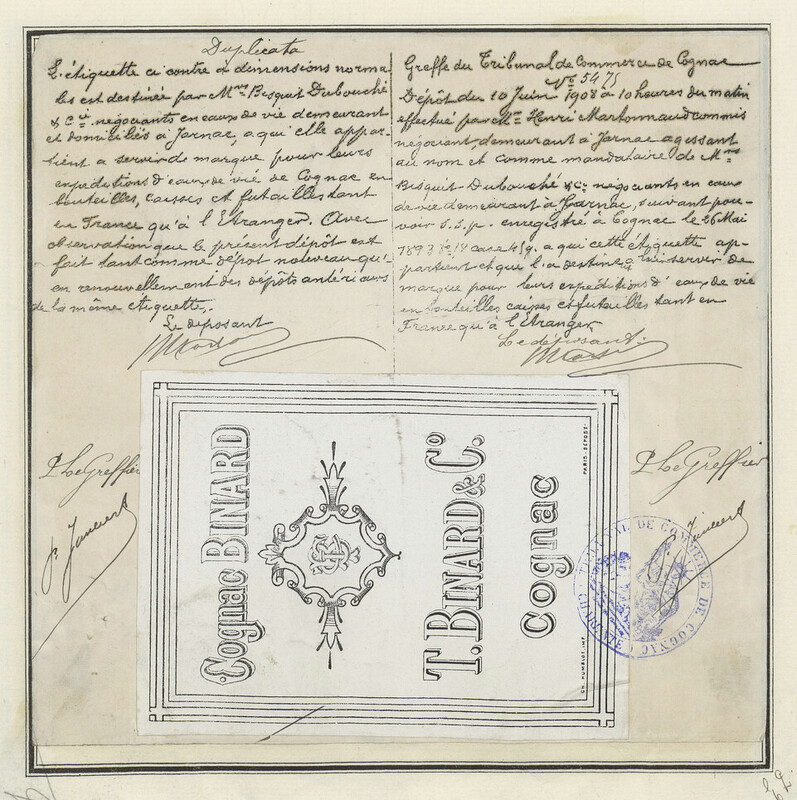 Duplicata
L'étiquette ci contre à dimensions norma
les est destinée par Mrs Bisquit Dubouché
& Cie négociants en eaux de vie demeurant
et domiciliés à Jarnac, a qui elle appar-
tient a servir de marque pour leurs
expéditions d'eaux de vie de Cognac en
bouteilles, caisses et futailles tant
en France qu'à l'Etranger. Avec
observation que le présent dépôt est
fait tant comme dépôt nouveau qu'
en renouvellement des dépôts antérieurs
de la même étiquette.
Le déposant
Greffe du Tribunal de Commerce de Cognac
No 5475
Dépôt du 10 Juin 1908 à 10 heures du matin
effectué par Mr Henri Marhonnaud commis
négociant, demeurant à Jarnac agissant
au nom et comme mandataire de Mrs
Bisquit Dubouché & Co négociants en eaux
de vie demeurant à Jarnac, suivant pou-
voir s.s.p. enregistré à Cognac le 26 Mai
1893 case a qui cette étiquette ap-
partient et qui l'a destinée à servir de
marque pour leurs expéditions d'eaux de vie
en bouteilles caisses et futailles tant en
France qu'à l'Etranger
Le déposant.
P. Le Greffier
P. Le Greffier
Cognac BINARD
T. BINARD & Co.
Cognac
PARIS, DÉPOSÉ
CH. HUMBLOT, IMP.
TRIBUNAL DE COMMERCE DE COGNAC